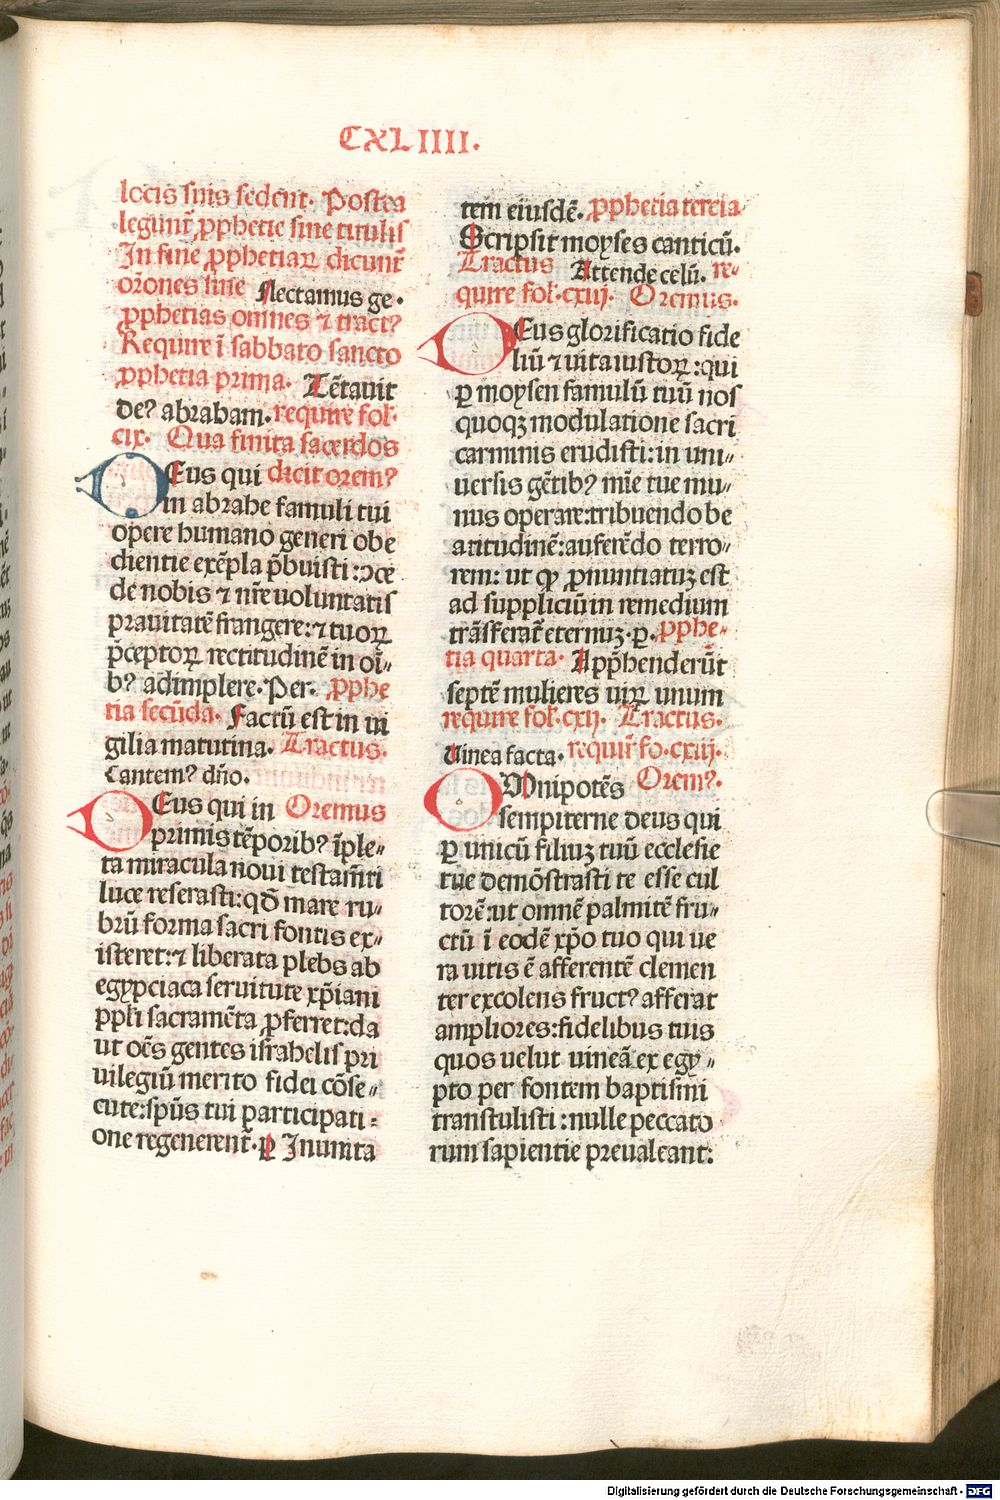 CXLIIII.
locis suis sedent. Postea
legunt̃ ꝓphetie sine titulis
In fine ꝓphetiaꝝ dicunt̃
or̃ones sine flectamus ge.
ꝓphetias omnes ⁊ tract?
Require ĩ sabbato sancto
ꝓphetia prima. Tẽtauit
de? abrabam. require fol.
cix. Qua finita sacerdos
DEus qui dicit orem?
in abrahe famuli tui
opere humano generi obe
dientie exẽpla p̃buisti: ↄce
de nobis ⁊ nr̃e uoluntatis
prauitatẽ frangere: ⁊ tuoꝝ
p̃ceptoꝝ rectitudinẽ in oĩ〃
b? adimplere. Per. ꝓphe
tia secũda. Factũ est in ui
gilia matutina. Tractus.
Cantem? dño.
DEus qui in Oremus
primis tẽporib? ĩple〃
ta miracula noui testam̃ti
luce reserasti: qđ mare ru〃
brũ forma sacri fontis ex〃
isteret: ⁊ liberata plebs ab
egypciaca seruitute xp̃iani
ppl̃i sacramẽta ꝓferret: da
ut oẽs gentes israhelis pri
uilegiũ merito fidei cõse〃
cute: sp̃us tui participati〃
one regenerent̃. ꝑ Inuirta
tem eiusdẽ. ꝓphetia tercia
Scripsit moyses canticũ.
Tractus Attende celũ. re〃
quire fol. cxiij. Oremus.
DEus glorificatio fide
liũ ⁊ uita iustoꝝ: qui
ꝑ moysen famulũ tuũ nos
quoqꝫ modulatione sacri
carminis erudisti: in uni〃
uersis gẽtib? mĩe tue mu〃
nus operare: tribuendo be
atitudinẽ: auferẽdo terro〃
rem: ut qp̃ ꝓnuntiatuꝫ est
ad suppliciũ in remedium
trãsferat̃ eternuꝫ. ꝑ. ꝓphe〃
tia quarta. App̃henderũt
septẽ mulieres uiꝝ unum
require fol. cxij. Tractus.
Uinea facta. requir̃ fo. cxiij.
OMnipotẽs Orem?.
sempiterne deus qui
ꝑ unicũ filiuꝫ tuũ ecclesie
tue demõstrasti te esse cul
torẽ: ut omnẽ palmitẽ fru〃
ctũ ĩ eodẽ xp̃o tuo qui ue
ra uitis ẽ afferentẽ clemen
ter excolens fruct? afferat
ampliores: fidelibus tuis
quos uelut uineã ex egy〃
pto per fontem baptismi
transtulisti: nulle peccato
rum sapientie preualeant:
Digitalisierung gefördert durch die Deutsche Forschungsgemeinschaft - DFG